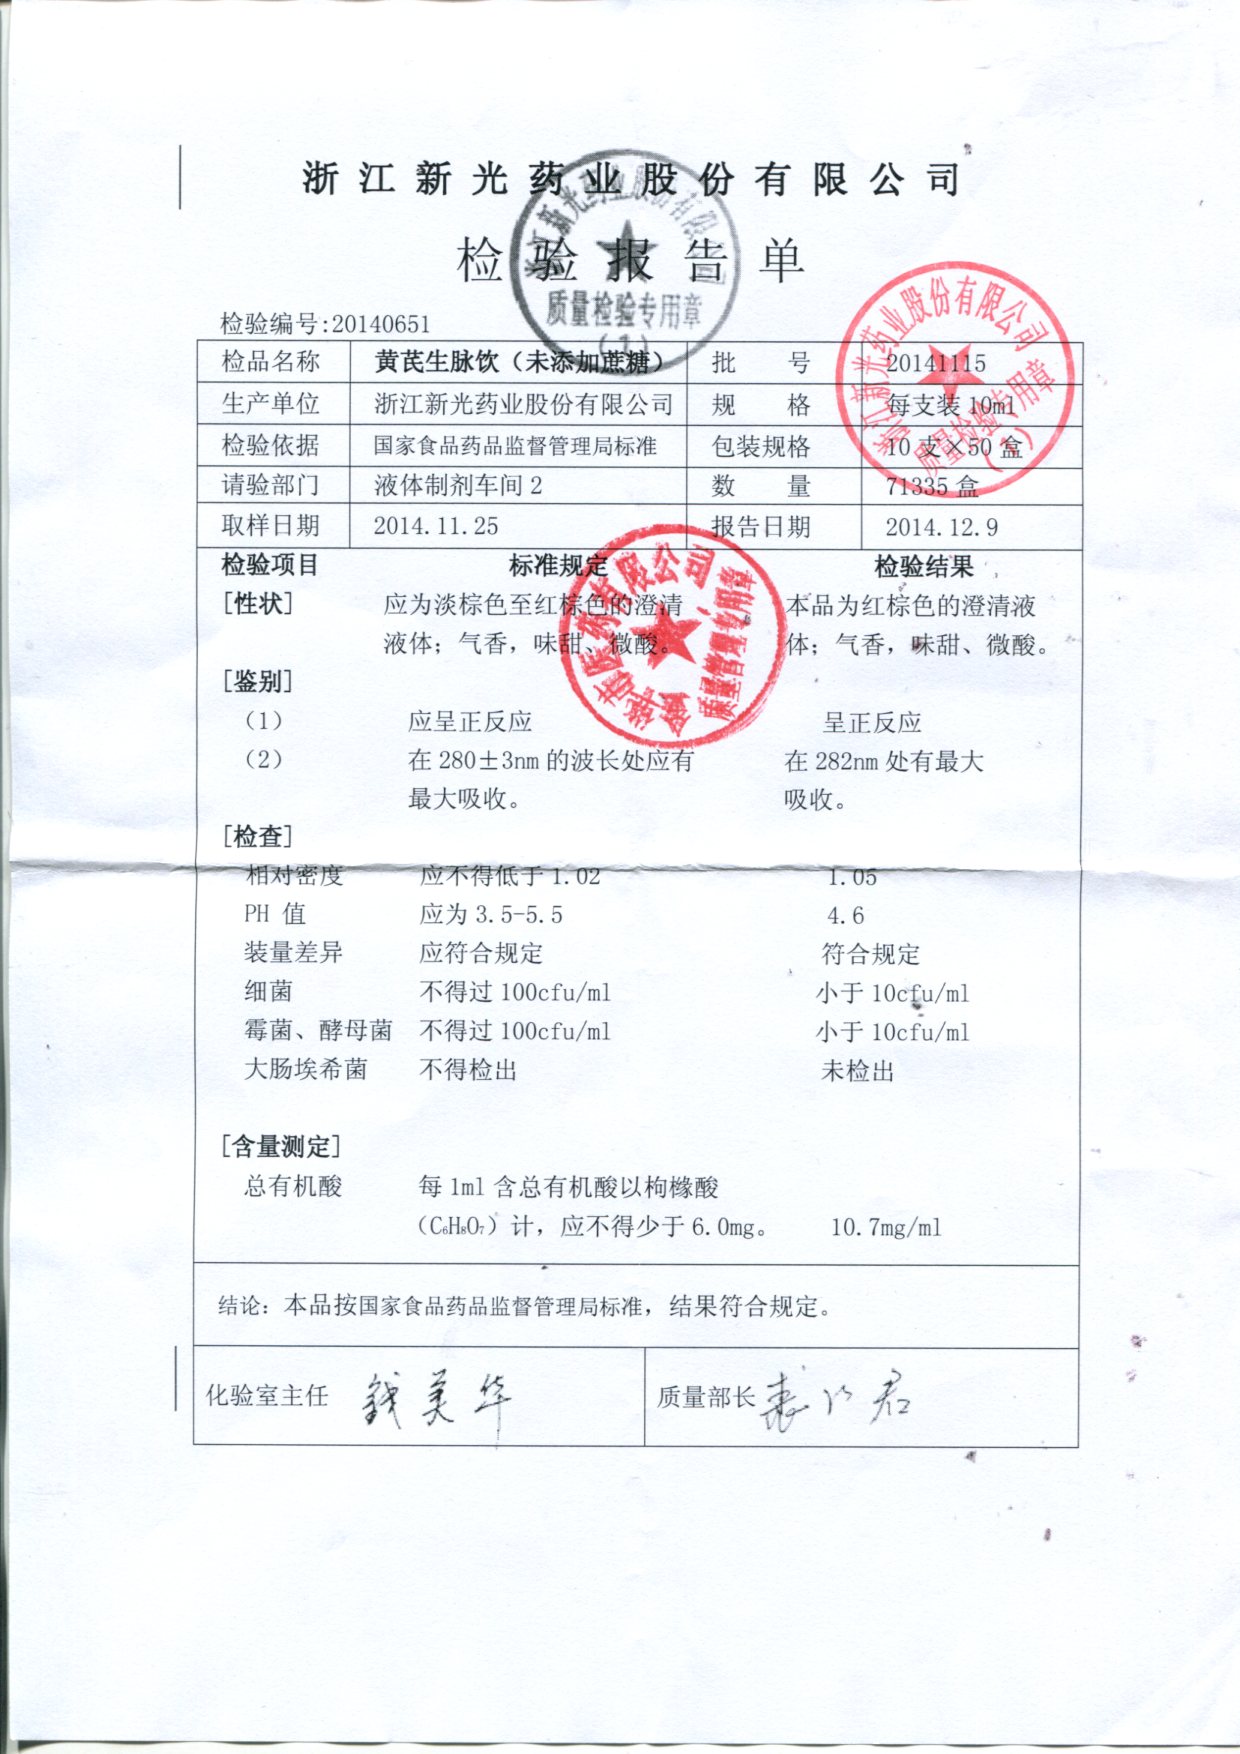 浙江新光药业股份有限公司
检验报告单
浙江新光药业股份有限公司
质量检验专用章
(1)
浙江新光药业股份有限公司
质量检验专用章
(1)
检验编号:20140651
检品名称 黄芪生脉饮（未添加蔗糖） 批 号 20141115
生产单位 浙江新光药业股份有限公司 规 格 每支装10ml
检验依据 国家食品药品监督管理局标准 包装规格 10支×50盒
请验部门 液体制剂车间2 数 量 71335盒
取样日期 2014.11.25 报告日期 2014.12.9
检验项目 标准规定 检验结果
[性状] 应为淡棕色至红棕色的澄清 本品为红棕色的澄清液
液体；气香，味甜、微酸。 体；气香，味甜、微酸。
医药有限公司
质量管理专用章
[鉴别]
（1） 应呈正反应 呈正反应
（2） 在280±3nm的波长处应有 在282nm处有最大
最大吸收。 吸收。
[检查]
相对密度 应不得低于1.02 1.05
PH 值 应为3.5-5.5 4.6
装量差异 应符合规定 符合规定
细菌 不得过100cfu/ml 小于10cfu/ml
霉菌、酵母菌 不得过100cfu/ml 小于10cfu/ml
大肠埃希菌 不得检出 未检出
[含量测定]
总有机酸 每1ml含总有机酸以枸橼酸
（C₆H₈O₇）计，应不得少于6.0mg。 10.7mg/ml
结论：本品按国家食品药品监督管理局标准，结果符合规定。
化验室主任 钱美华 质量部长